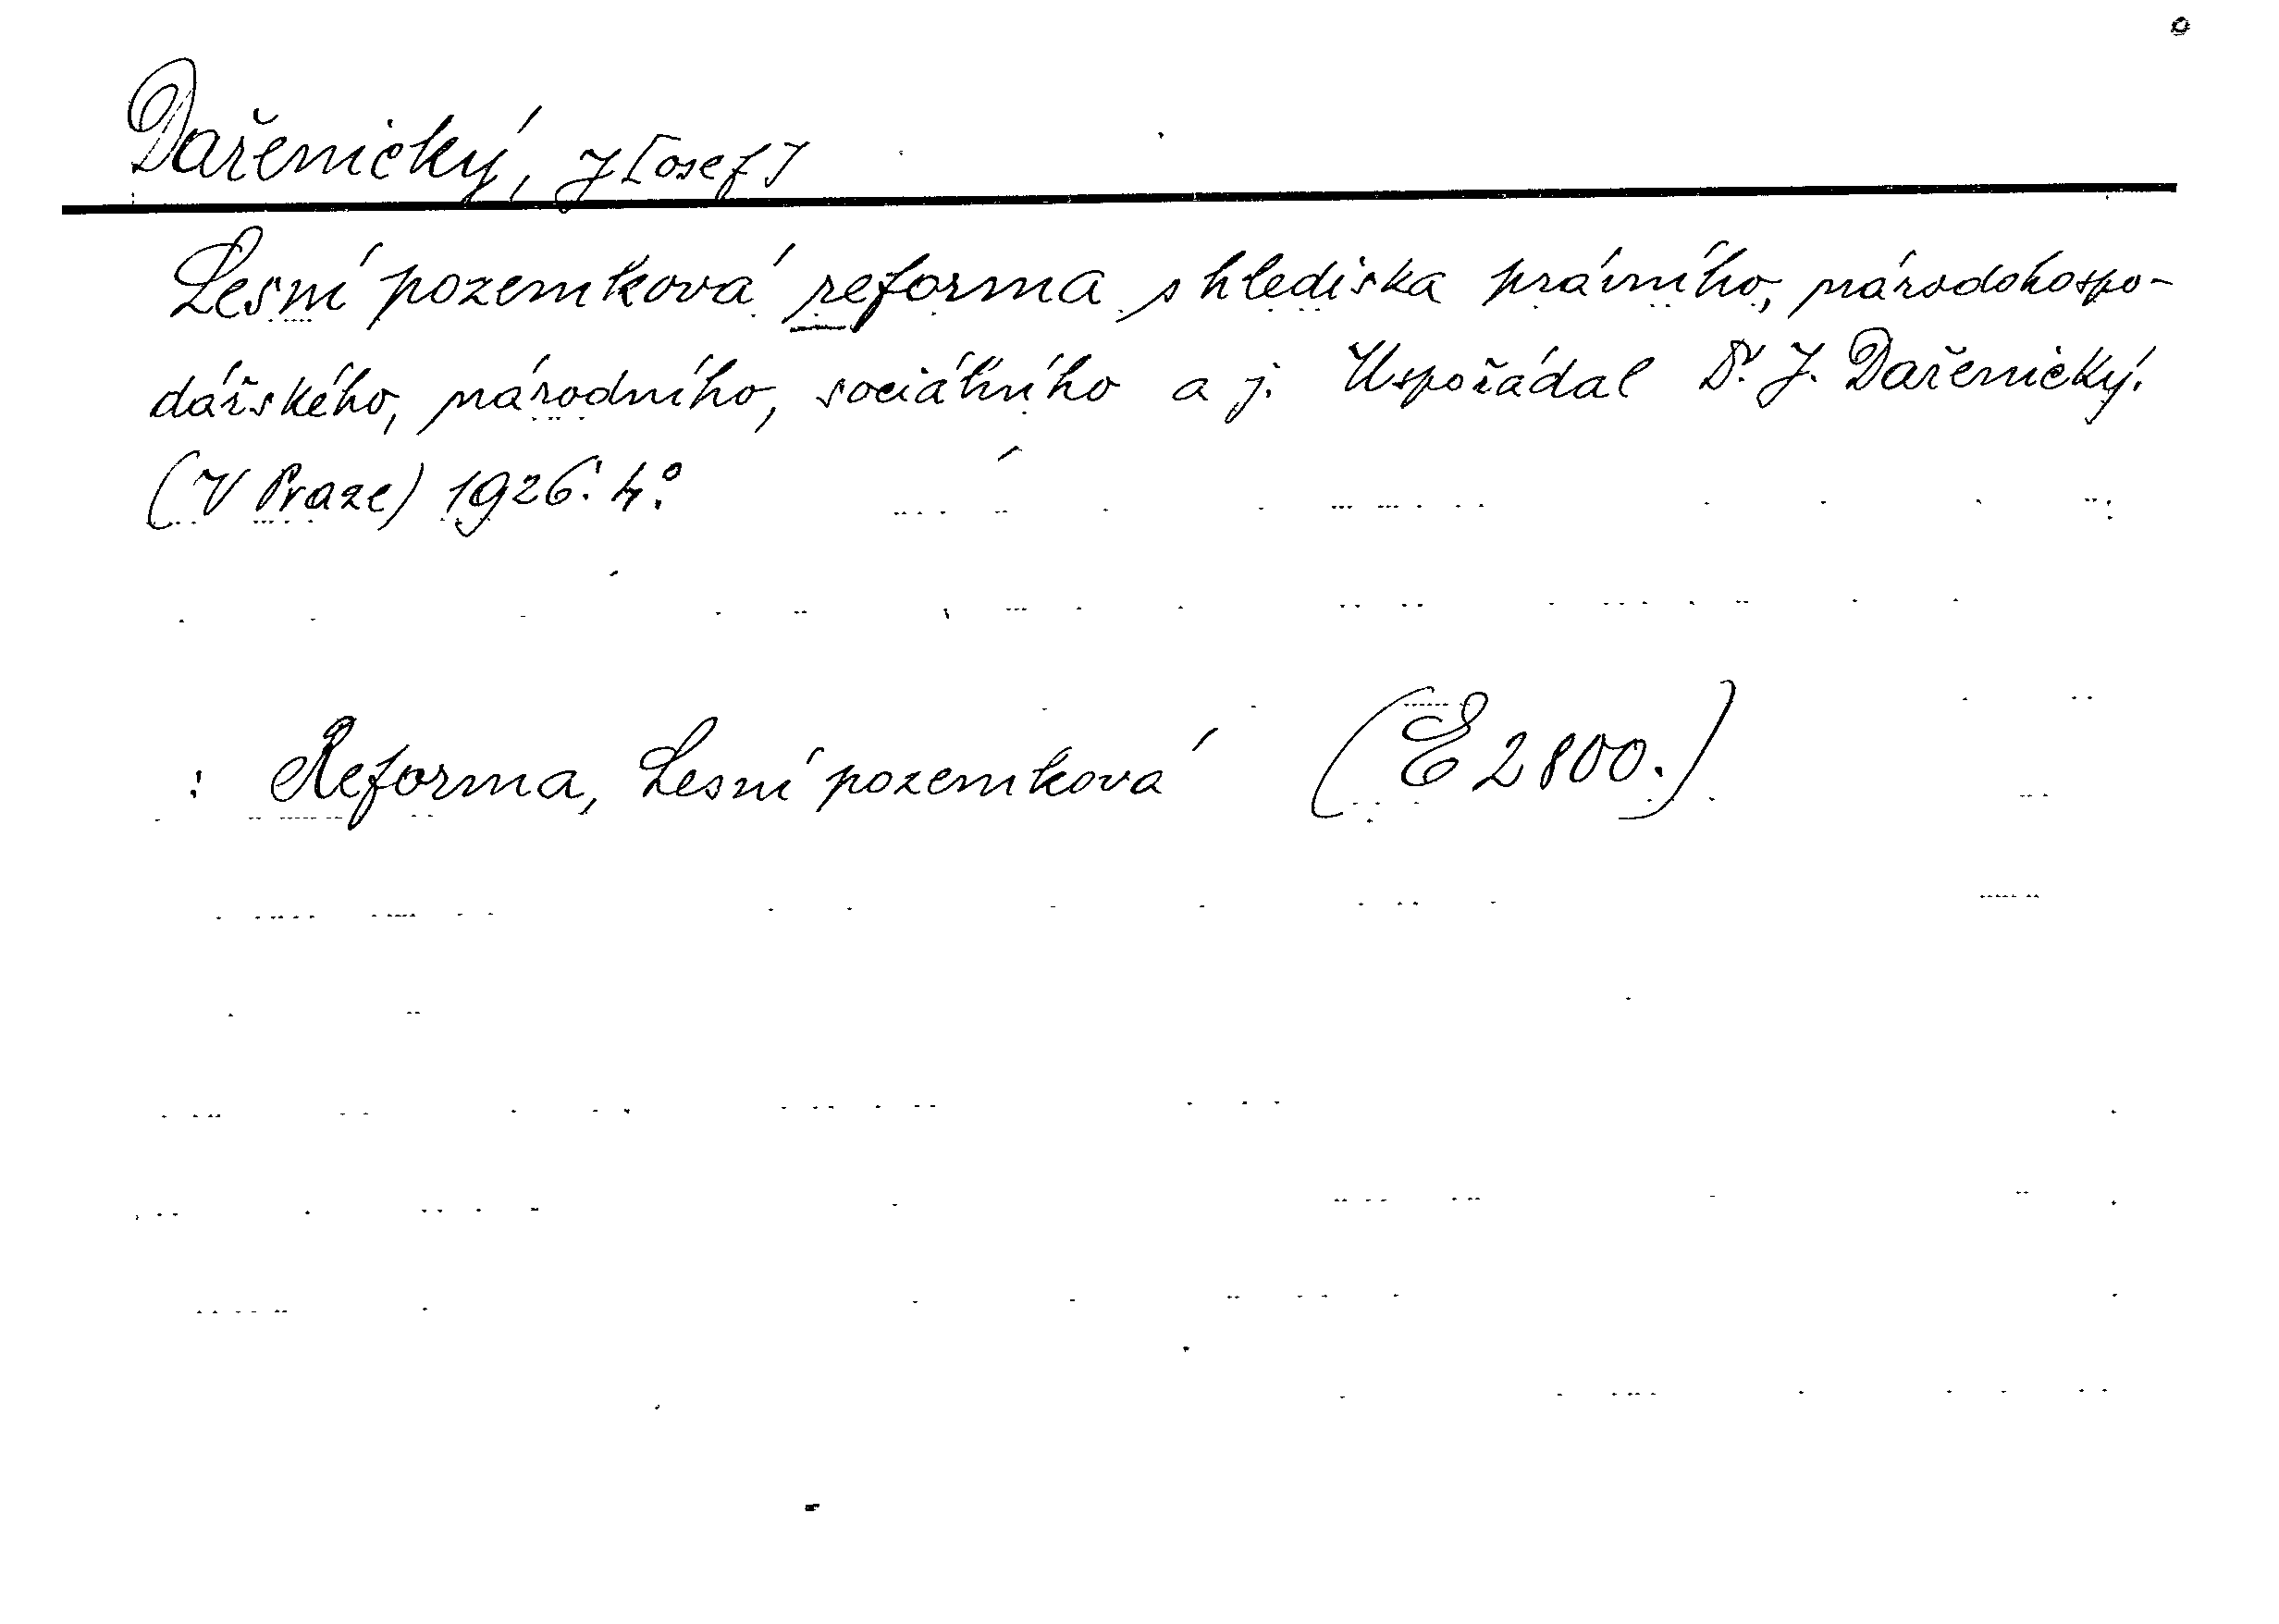 Dařenický, J[osef]
Lesní pozemková reforma s hlediska právního, národohospo-
dářského, národního, sociálního a j. Uspořádal Dr. J. Dařenický.
(V Praze) 1926. 4.°
: Reforma, Lesní pozemková (E 2800.)